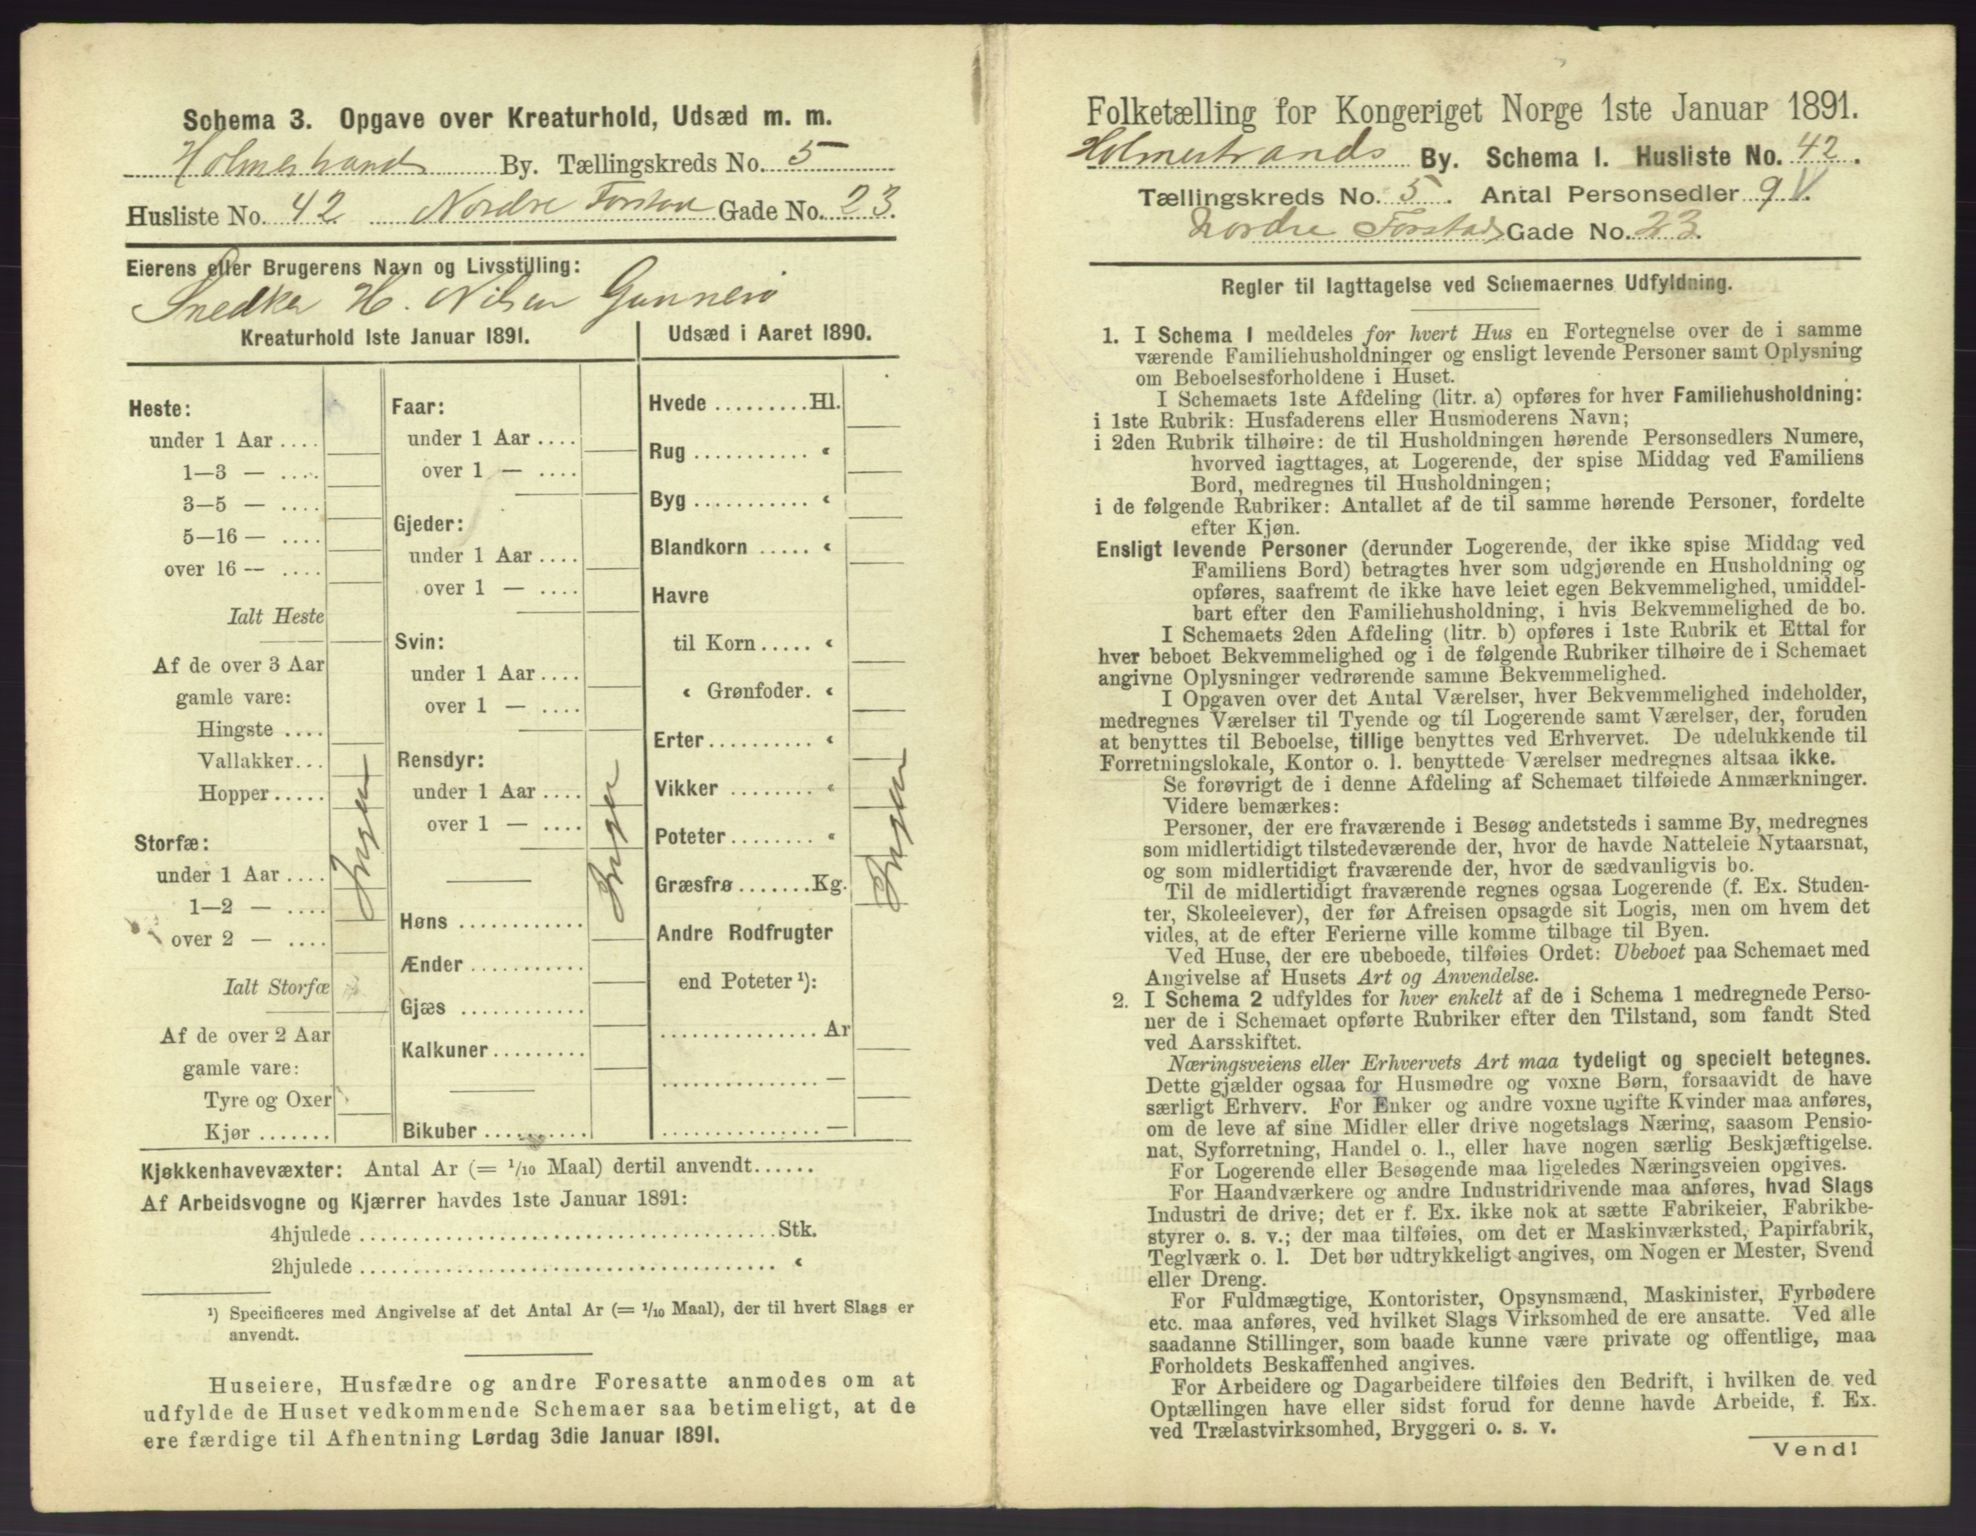 Schema 3. Opgave over Kreaturhold, Udsæd m. m.
Holmestrand By. Tællingskreds No. 5
Husliste No. 42 Nordre Forstad Gade No. 23.
Eierens eller Brugerens Navn og Livsstilling:
Snedker H. Nilsen Gunnerø
Kreaturhold 1ste Januar 1891.
Heste:
under 1 Aar ....
1—3 — ....
3—5 — ....
5—16 — ....
over 16 — ....
Ialt Heste
Af de over 3 Aar
gamle vare:
Hingste ....
Vallakker...
Hopper.....
Storfæ:
under 1 Aar ....
1—2 — ....
over 2 — ....
Ialt Storfæ
Af de over 2 Aar
gamle vare:
Tyre og Oxer
Kjør .......
Ingen
Faar:
under 1 Aar ....
over 1 — ....
Gjeder:
under 1 Aar ....
over 1 — ....
Svin:
under 1 Aar ....
over 1 — ....
Rensdyr:
under 1 Aar ....
over 1 — ....
Høns ...........
Ænder ..........
Gjæs ...........
Kalkuner.........
Bikuber ..........
Ingen
Udsæd i Aaret 1890.
Hvede .........Hl.
Rug ........... «
Byg ........... «
Blandkorn ..... «
Havre
til Korn ..... «
« Grønfoder. «
Erter.......... «
Vikker ........ «
Poteter........ «
Græsfrø .......Kg.
Andre Rodfrugter
end Poteter ¹):
............... Ar
............... —
............... —
Ingen
Kjøkkenhavevæxter: Antal Ar (= 1/10 Maal) dertil anvendt......
Af Arbeidsvogne og Kjærrer havdes 1ste Januar 1891:
4hjulede ........................................Stk.
2hjulede ........................................ «
¹) Specificeres med Angivelse af det Antal Ar (= 1/10 Maal), der til hvert Slags er
anvendt.
Huseiere, Husfædre og andre Foresatte anmodes om at
udfylde de Huset vedkommende Schemaer saa betimeligt, at de
ere færdige til Afhentning Lørdag 3die Januar 1891.
Folketælling for Kongeriget Norge 1ste Januar 1891.
Holmestrands By. Schema 1. Husliste No. 42.
Tællingskreds No. 5. Antal Personsedler 9 V.
Nordre Forstads Gade No. 23.
Regler til Iagttagelse ved Schemaernes Udfyldning.
1. I Schema 1 meddeles for hvert Hus en Fortegnelse over de i samme
værende Familiehusholdninger og ensligt levende Personer samt Oplysning
om Beboelsesforholdene i Huset.
I Schemaets 1ste Afdeling (litr. a) opføres for hver Familiehusholdning:
i 1ste Rubrik: Husfaderens eller Husmoderens Navn;
i 2den Rubrik tilhøire: de til Husholdningen hørende Personsedlers Numere,
hvorved iagttages, at Logerende, der spise Middag ved Familiens
Bord, medregnes til Husholdningen;
i de følgende Rubriker: Antallet af de til samme hørende Personer, fordelte
efter Kjøn.
Ensligt levende Personer (derunder Logerende, der ikke spise Middag ved
Familiens Bord) betragtes hver som udgjørende en Husholdning og
opføres, saafremt de ikke have leiet egen Bekvemmelighed, umiddel-
bart efter den Familiehusholdning, i hvis Bekvemmelighed de bo.
I Schemaets 2den Afdeling (litr. b) opføres i 1ste Rubrik et Ettal for
hver beboet Bekvemmelighed og i de følgende Rubriker tilhøire de i Schemaet
angivne Oplysninger vedrørende samme Bekvemmelighed.
I Opgaven over det Antal Værelser, hver Bekvemmelighed indeholder,
medregnes Værelser til Tyende og til Logerende samt Værelser, der, foruden
at benyttes til Beboelse, tillige benyttes ved Erhvervet. De udelukkende til
Forretningslokale, Kontor o. l. benyttede Værelser medregnes altsaa ikke.
Se forøvrigt de i denne Afdeling af Schemaet tilføiede Anmærkninger.
Videre bemærkes:
Personer, der ere fraværende i Besøg andetsteds i samme By, medregnes
som midlertidigt tilstedeværende der, hvor de havde Natteleie Nytaarsnat,
og som midlertidigt fraværende der, hvor de sædvanligvis bo.
Til de midlertidigt fraværende regnes ogsaa Logerende (f. Ex. Studen-
ter, Skoleelever), der før Afreisen opsagde sit Logis, men om hvem det
vides, at de efter Ferierne ville komme tilbage til Byen.
Ved Huse, der ere ubeboede, tilføies Ordet: Ubeboet paa Schemaet med
Angivelse af Husets Art og Anvendelse.
2. I Schema 2 udfyldes for hver enkelt af de i Schema 1 medregnede Perso-
ner de i Schemaet opførte Rubriker efter den Tilstand, som fandt Sted
ved Aarsskiftet.
Næringsveiens eller Erhvervets Art maa tydeligt og specielt betegnes.
Dette gjælder ogsaa for Husmødre og voxne Børn, forsaavidt de have
særligt Erhverv. For Enker og andre voxne ugifte Kvinder maa anføres,
om de leve af sine Midler eller drive nogetslags Næring, saasom Pensio-
nat, Syforretning, Handel o. l., eller have nogen særlig Beskjæftigelse.
For Logerende eller Besøgende maa ligeledes Næringsveien opgives.
For Haandværkere og andre Industridrivende maa anføres, hvad Slags
Industri de drive; det er f. Ex. ikke nok at sætte Fabrikeier, Fabrikbe-
styrer o. s. v.; der maa tilføies, om det er Maskinværksted, Papirfabrik,
Teglværk o. l. Det bør udtrykkeligt angives, om Nogen er Mester, Svend
eller Dreng.
For Fuldmægtige, Kontorister, Opsynsmænd, Maskinister, Fyrbødere
etc. maa anføres, ved hvilket Slags Virksomhed de ere ansatte. Ved alle
saadanne Stillinger, som baade kunne være private og offentlige, maa
Forholdets Beskaffenhed angives.
For Arbeidere og Dagarbeidere tilføies den Bedrift, i hvilken de ved
Optællingen have eller sidst forud for denne havde Arbeide, f. Ex.
ved Trælastvirksomhed, Bryggeri o. s. v.
Vend!